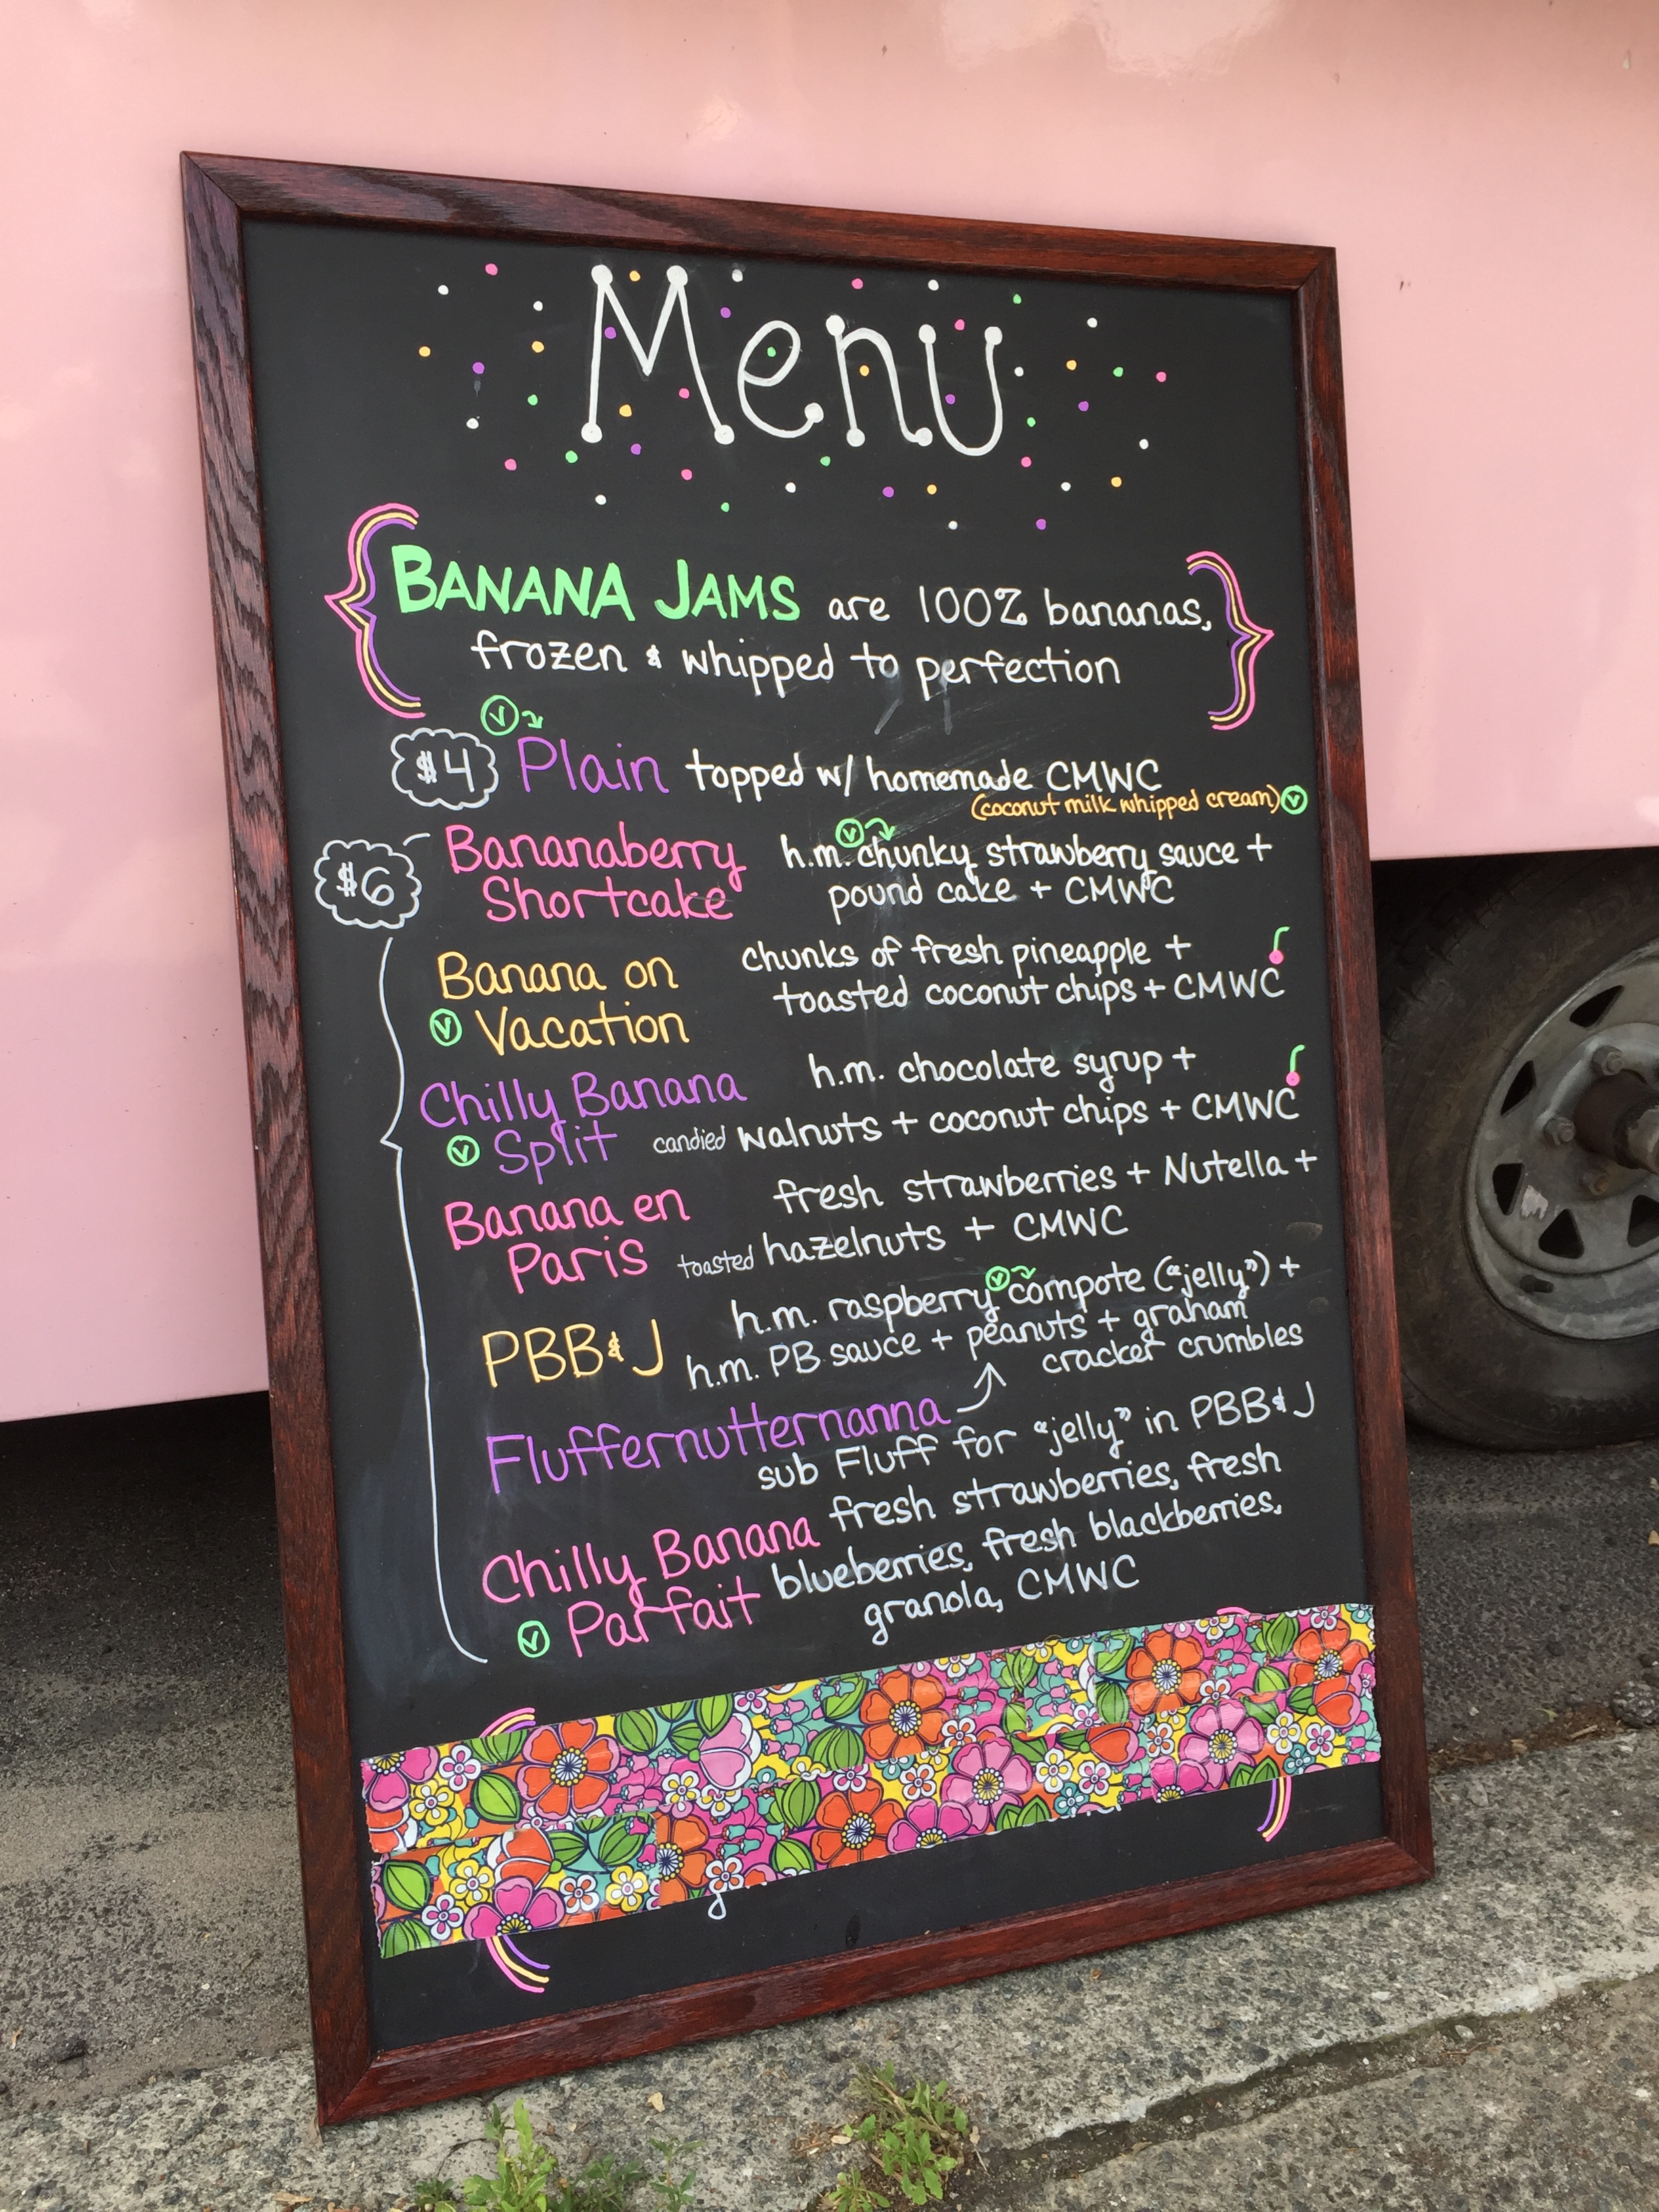 Menu
BANANA JAMS are 100% bananas,
frozen & whipped to perfection
V
$4 Plain topped w/ homemade CMWC
(coconut milk whipped cream) V
$6
Bananaberry
Shortcake
h.m. V chunky strawberry sauce +
pound cake + CMWC
Banana on
V Vacation
chunks of fresh pineapple +
toasted coconut chips + CMWC
Chilly Banana
V Split
h.m. chocolate syrup +
candied walnuts + coconut chips + CMWC
Banana en
Paris
fresh strawberries + Nutella +
toasted hazelnuts + CMWC
PBB&J
h.m. raspberry V compote ("jelly") +
h.m. PB sauce + peanuts + graham
cracker crumbles
Fluffernutternanna
sub Fluff for "jelly" in PBB&J
Chilly Banana
V Parfait
fresh strawberries, fresh
blueberries, fresh blackberries,
granola, CMWC